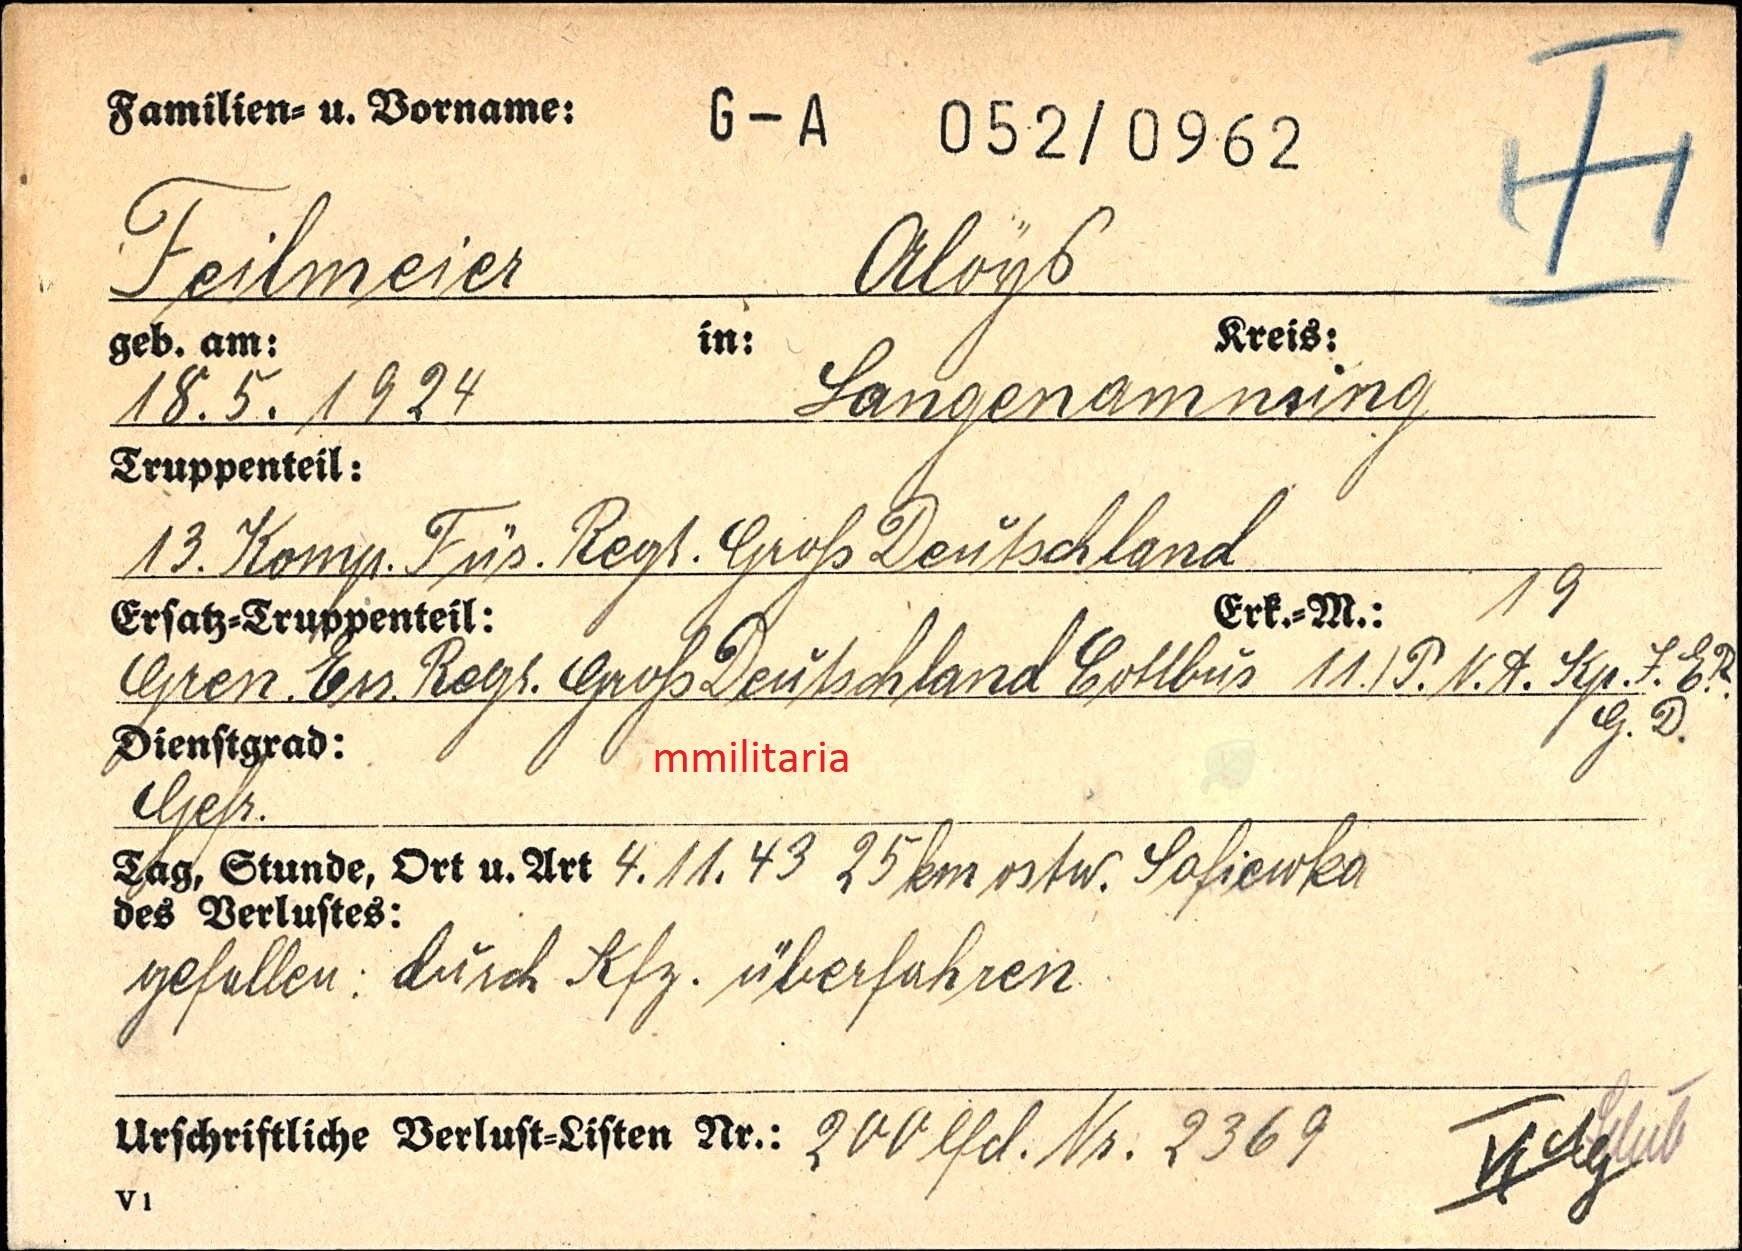 Familien- u. Vorname: G-A 052/0962
Feilmeier Aloÿs
geb. am: in: Kreis:
18.5.1924 Langenamming
Truppenteil:
13. Komp. Füs. Regt. Groß Deutschland
Ersatz-Truppenteil: Erk.-M.: 19
Gren. Ers. Regt. Groß Deutschland Cottbus 11./P.V.A. Kp. I.E.R.
G.D.
Dienstgrad: mmilitaria
Gefr.
Tag, Stunde, Ort u. Art 4.11.43 25 km ostw. Sofiewka
des Verlustes:
gefallen: durch Kfz. überfahren
Urschriftliche Verlust-Listen Nr.: 200 lfd. Nr. 2369
V1